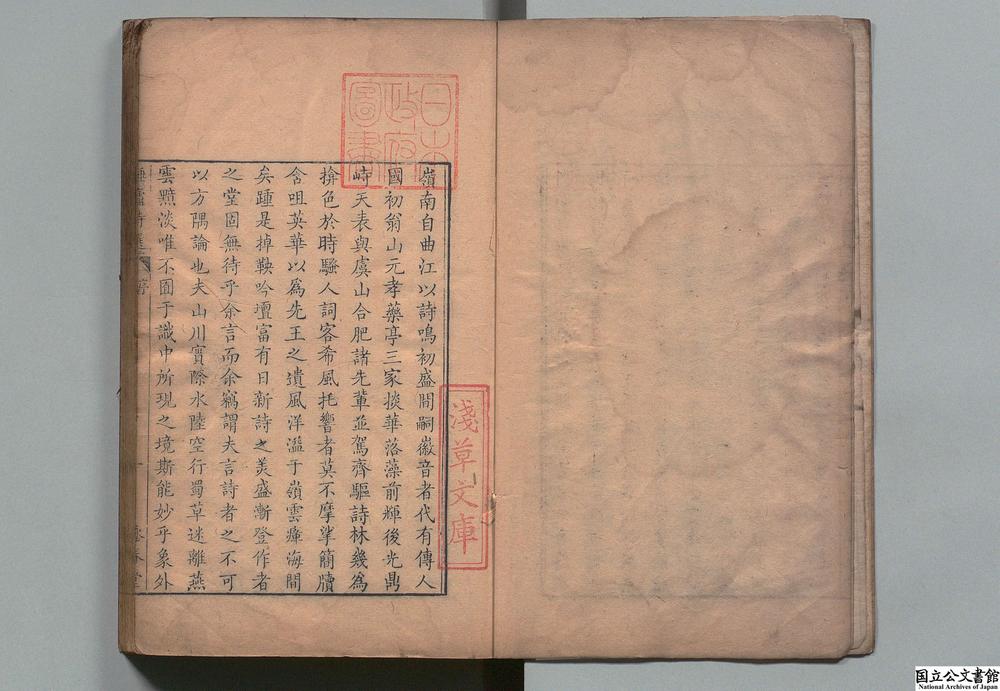 日本
政府
圖書
嶺南自曲江以詩鳴初盛間嗣徽音者代有傳人
國初翁山元孝藥亭三家掞華落藻前輝後光鼎
峙天表與虞山合肥諸先輩並駕齊驅詩林幾為
揜色於時騷人詞客希風托響者莫不摩挲簡牘
含咀英華以為先王之遺風洋溢于嶺雲瘴海間
矣踵是掉鞅吟壇富有日新詩之美盛漸登作者
之堂固無待乎余言而余竊謂夫言詩者之不可
以方隅論也夫山川實際水陸空行蜀草迷離燕
雲黯淡唯不囿于識中所現之境斯能妙乎象外
淺草文庫
国立公文書館
National Archives of Japan